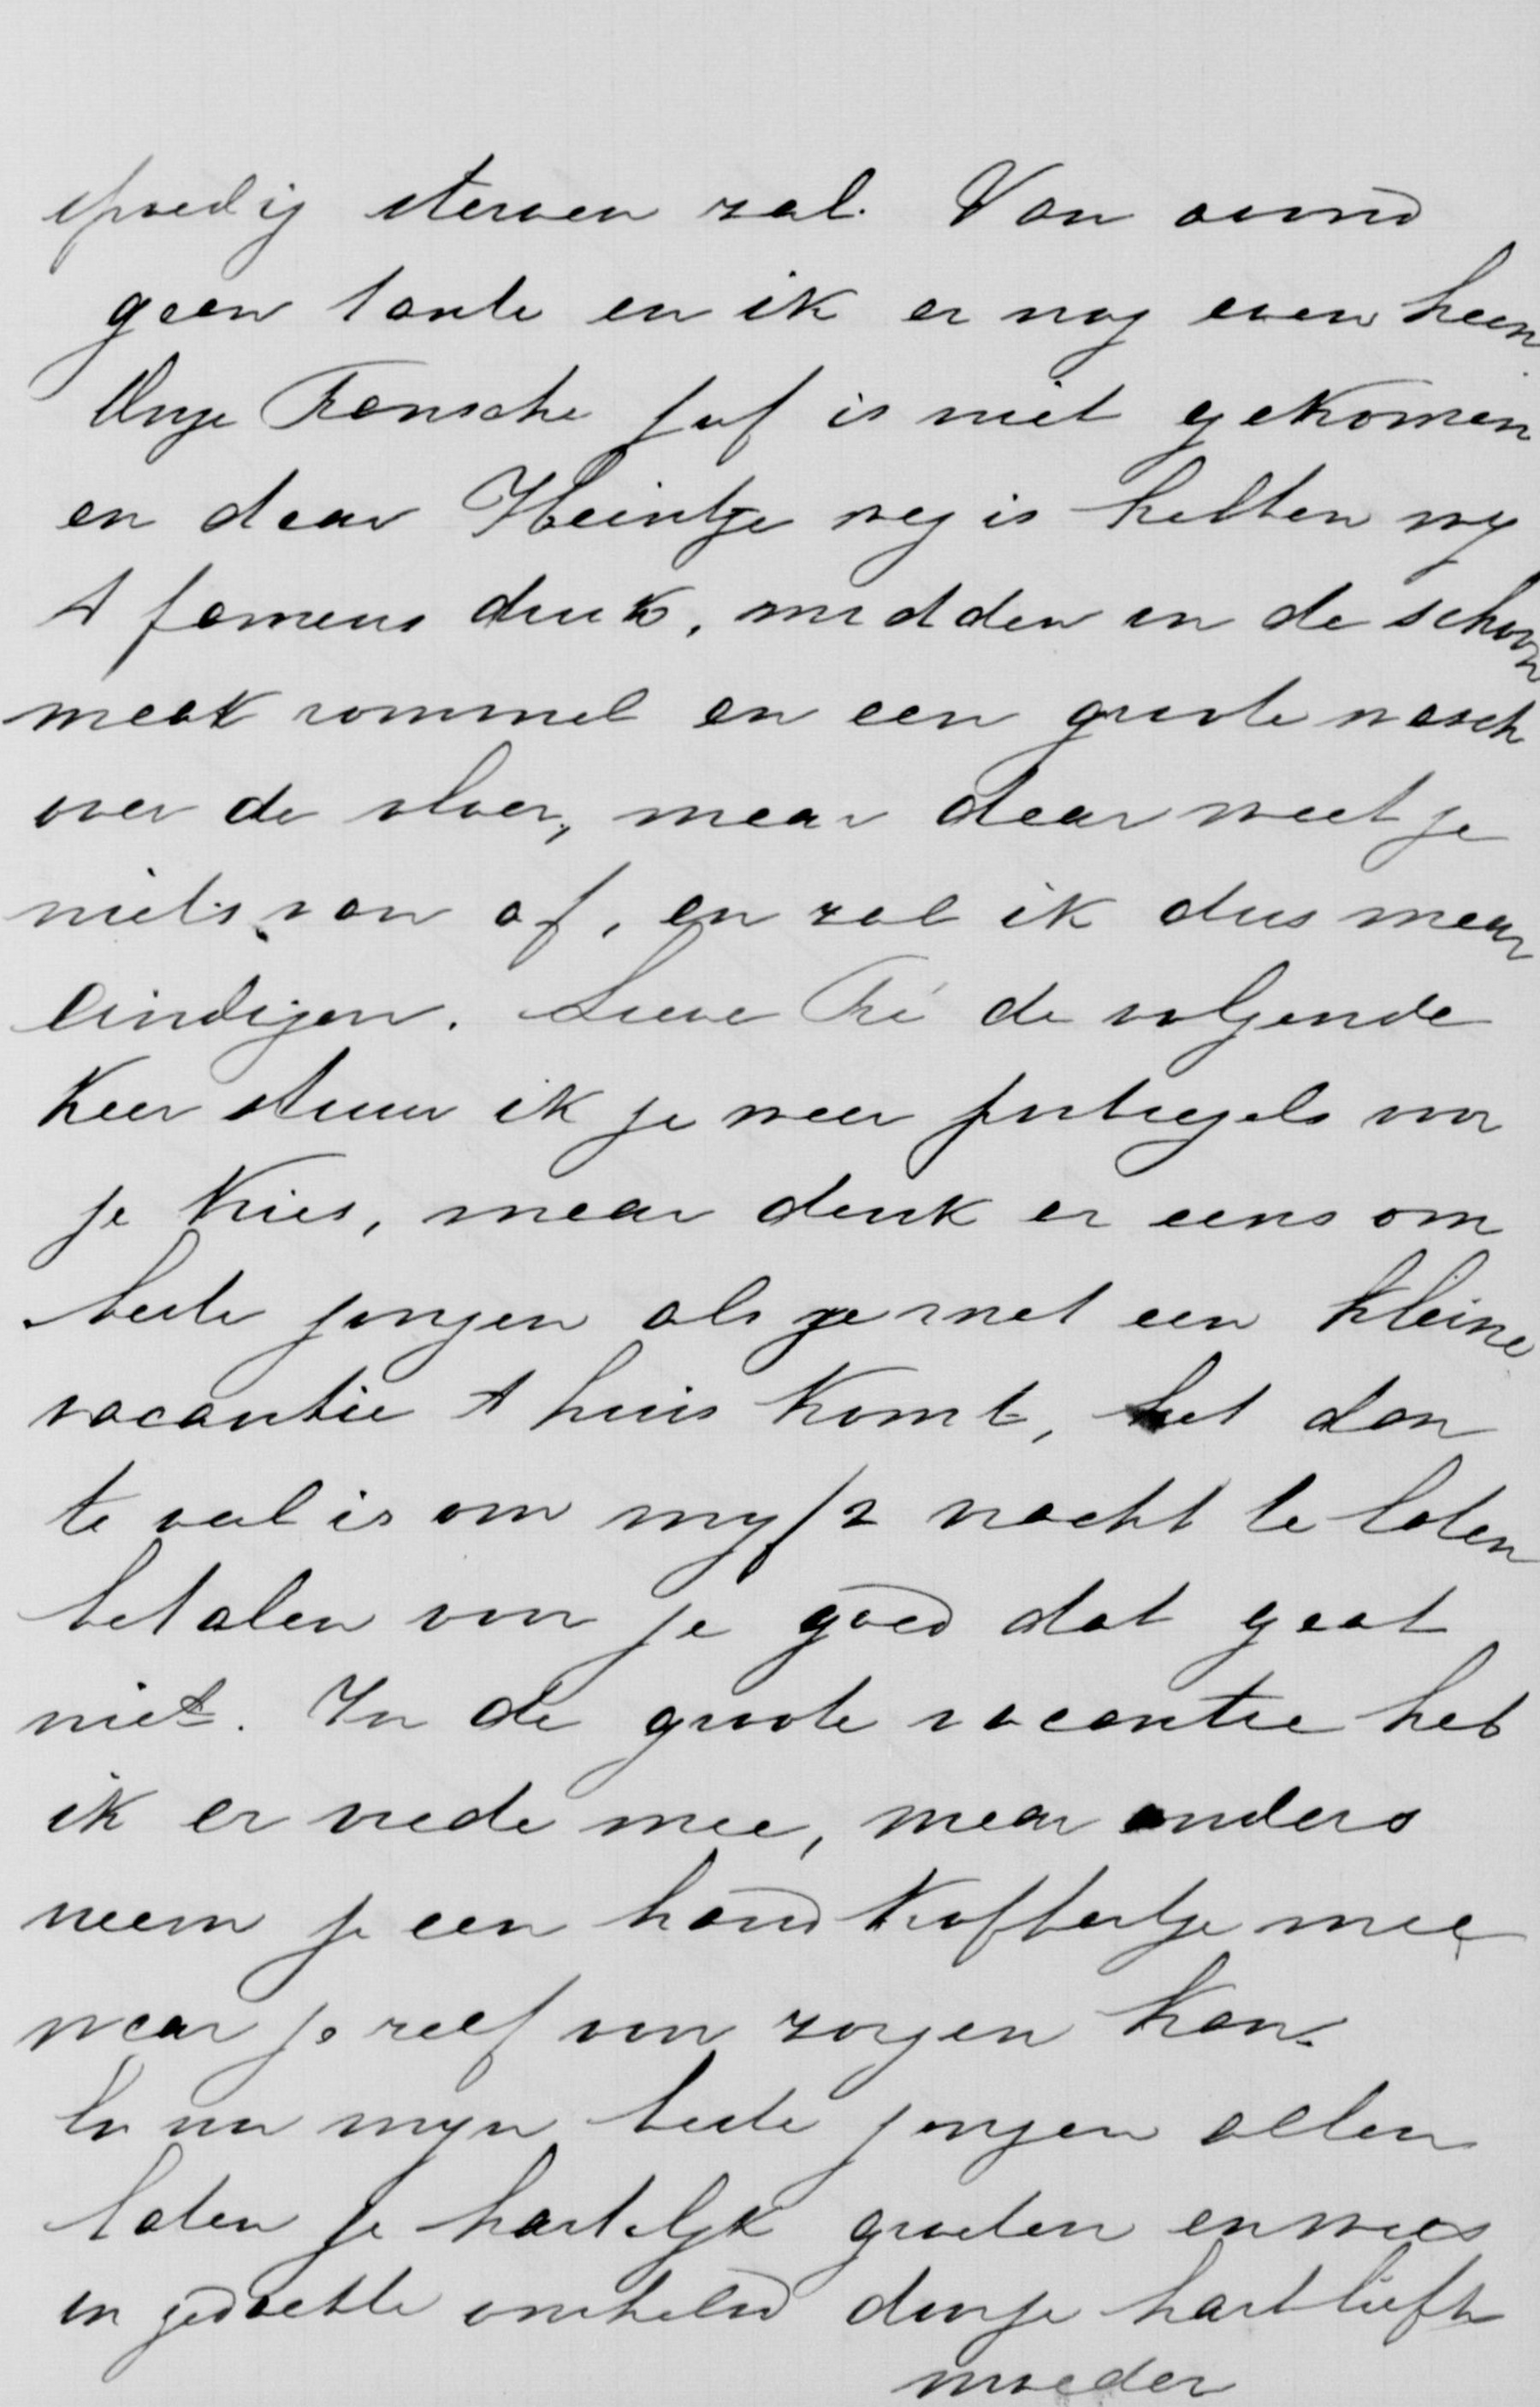 spoedig sterven zal. Van avond
gaan tante en ik er nog even heen
Onze Fransche juf is niet gekomen
en daar Heintje weg is hebben wy
't fameus druk, midden in de schoon
maak rommel en een groote wasch
over de vloer, maar daar weet je
niets van af, en zal ik dus maar
eindigen. Lieve Fré de volgende
Keer stuur ik je weer postzegels voor
je Kies, maar denk er eens om
beste jongen als je met een Kleine
vacantie t huis Komt, het dan
te veel is om my f 2 vracht te laten
betalen voor je goed dat gaat
niet. In de groote vacantie heb
ik er vrede mee, maar anders
neem je een hand Koffertje mee
waar je zelf voor zorgen Kan.
En nu myn beste jongen allen
laten je hartelyk groeten en wees
in gedachte omhelsd door je hartliefh
moeder